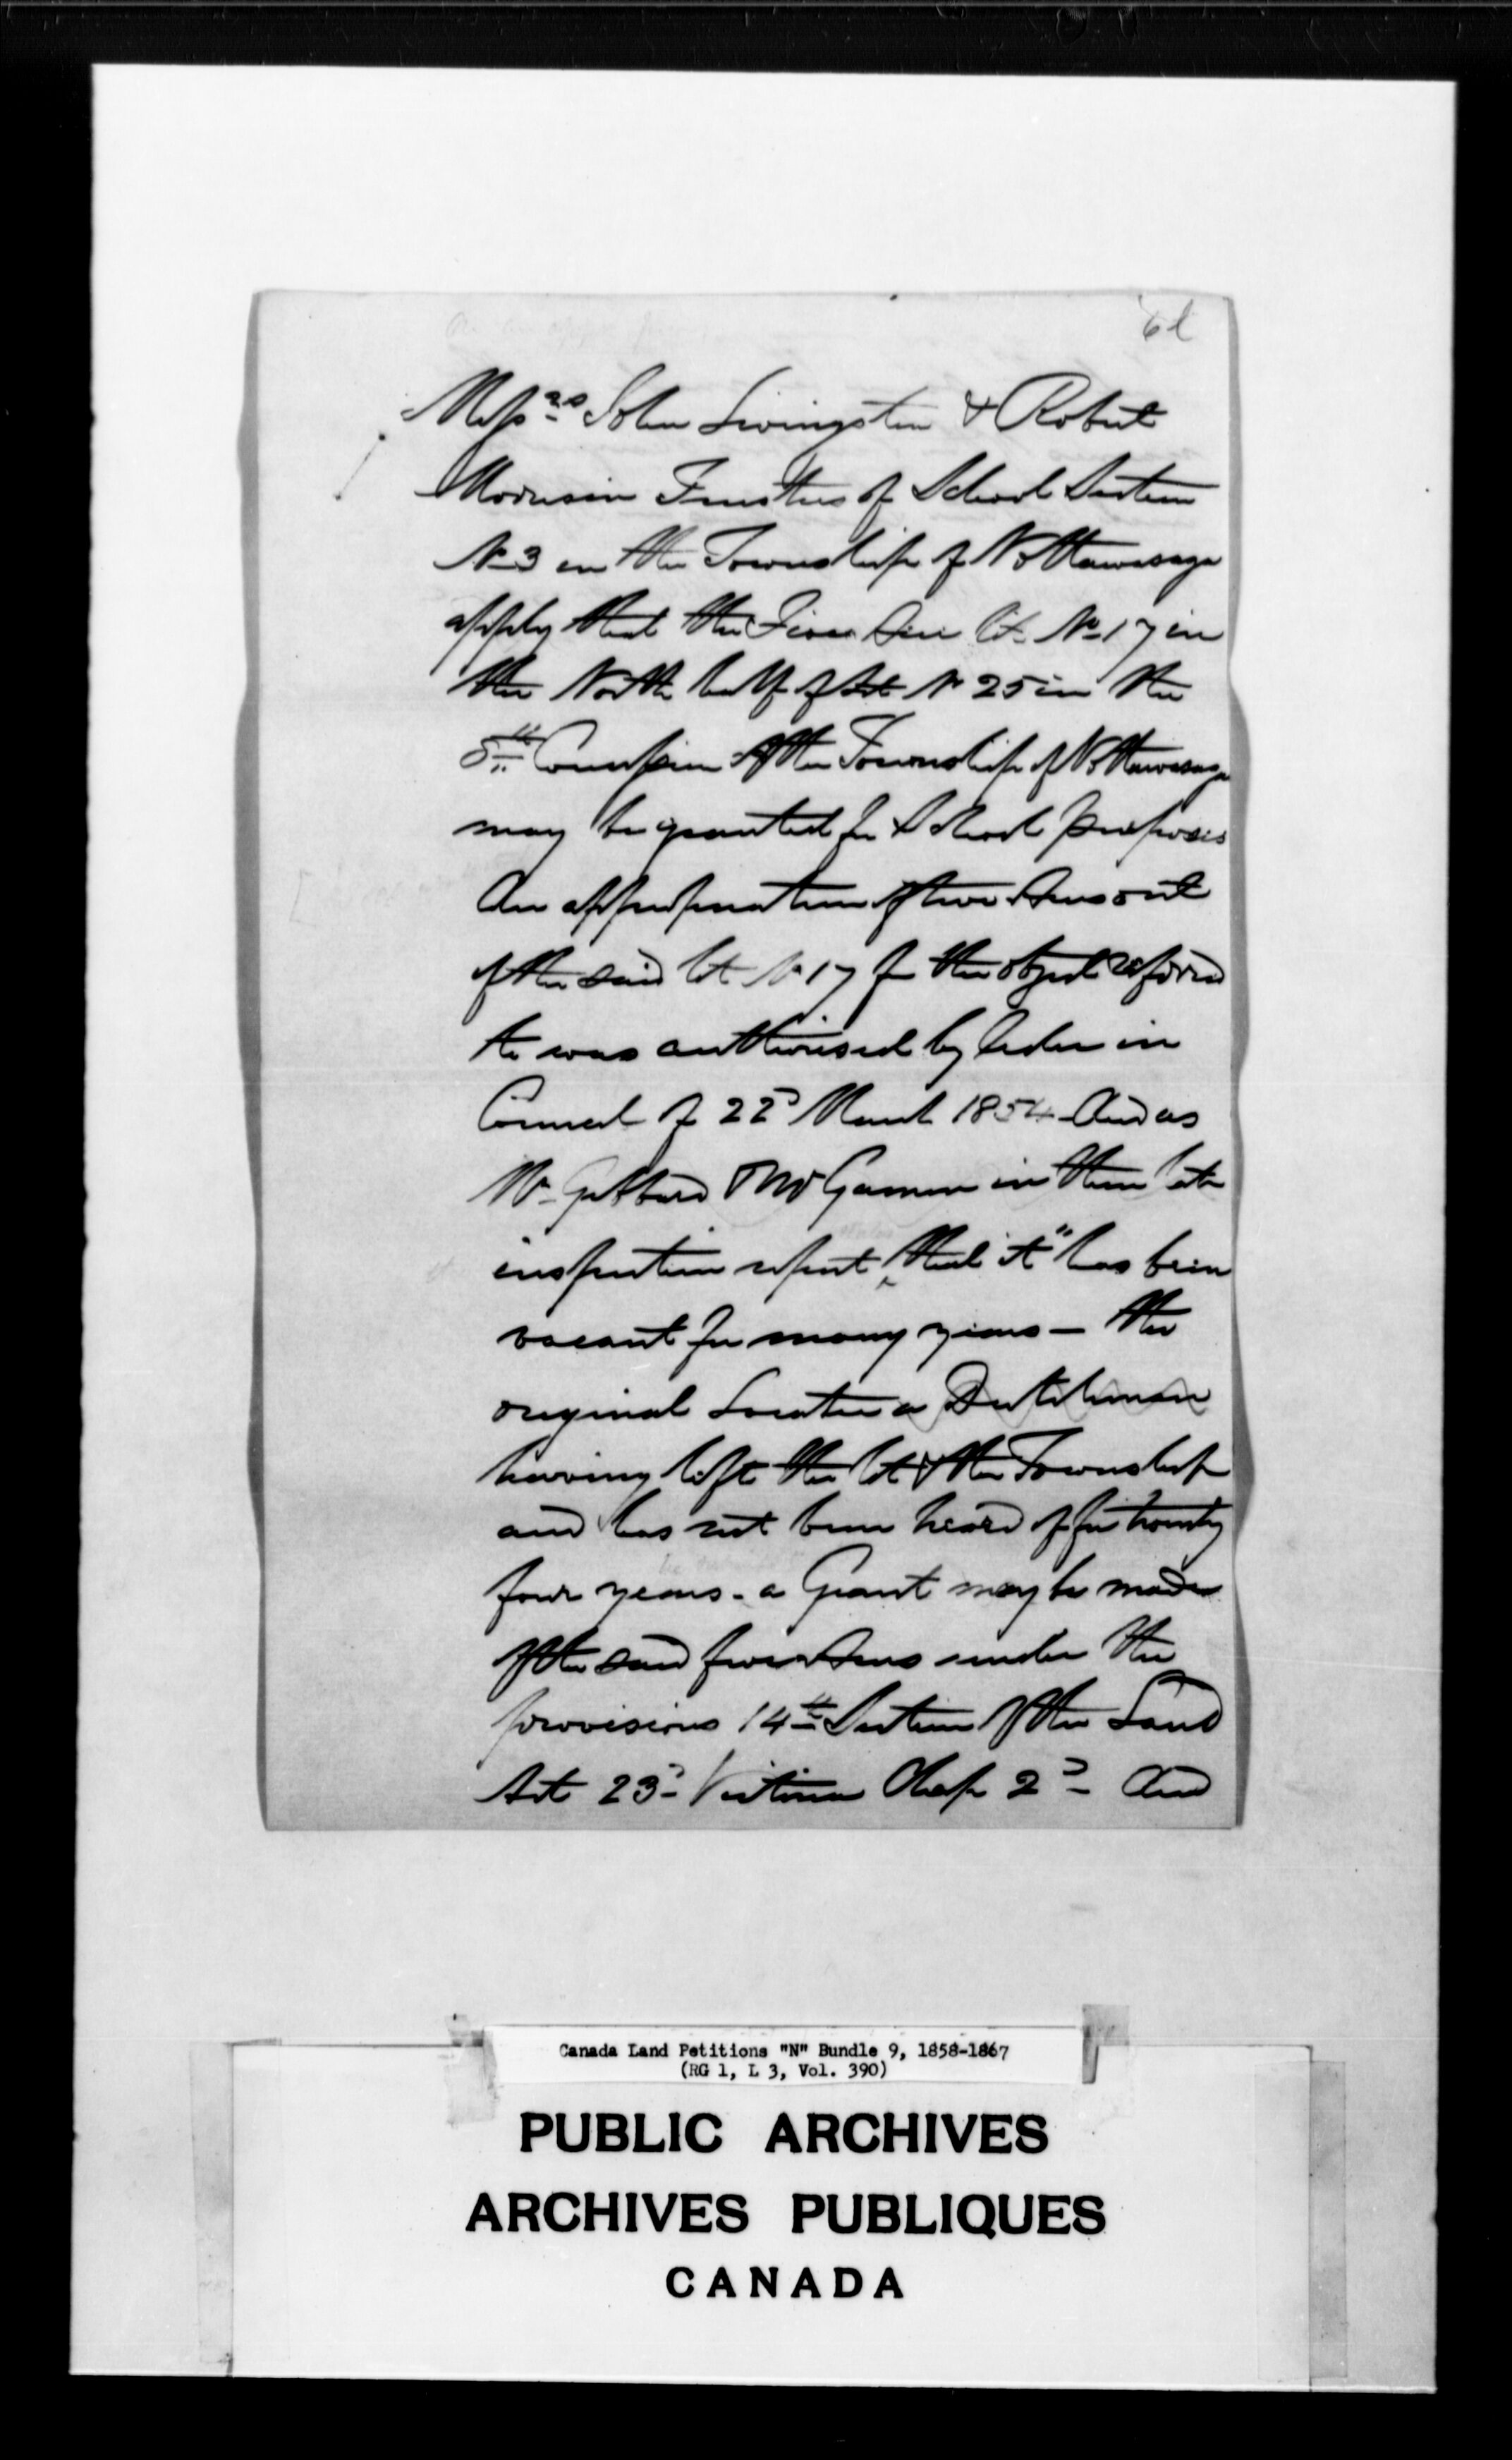 6l
Messrs John Livingston & Robert
Morrison Trustees of School Section
No 3 in the Township of Nottawasaga
apply that the Five Acre lot No 17 in
the North half of Lot No 25 in the
8th Concession of the Township of Nottawasaga
may be granted for School purposes
An appropriation of five Acres out
of the said lot No 17 for the object referred
to was authorised by Order in
Council of 22d March 1854 And as
Mr Gibbard & Mr Gamon in their late
inspection report that it "has been
vacant for many years — the
original Locatee a Dutchman
having left the lot & the Township
and has not been heard of for twenty
four years - a Grant may be made
of the said five Acres under the
provisions 14th Section of the Land
Act 23d Victoria Chap 2d - And
Canada Land Petitions "N" Bundle 9, 1858-1867
(RG 1, L 3, Vol. 390)
PUBLIC ARCHIVES
ARCHIVES PUBLIQUES
CANADA